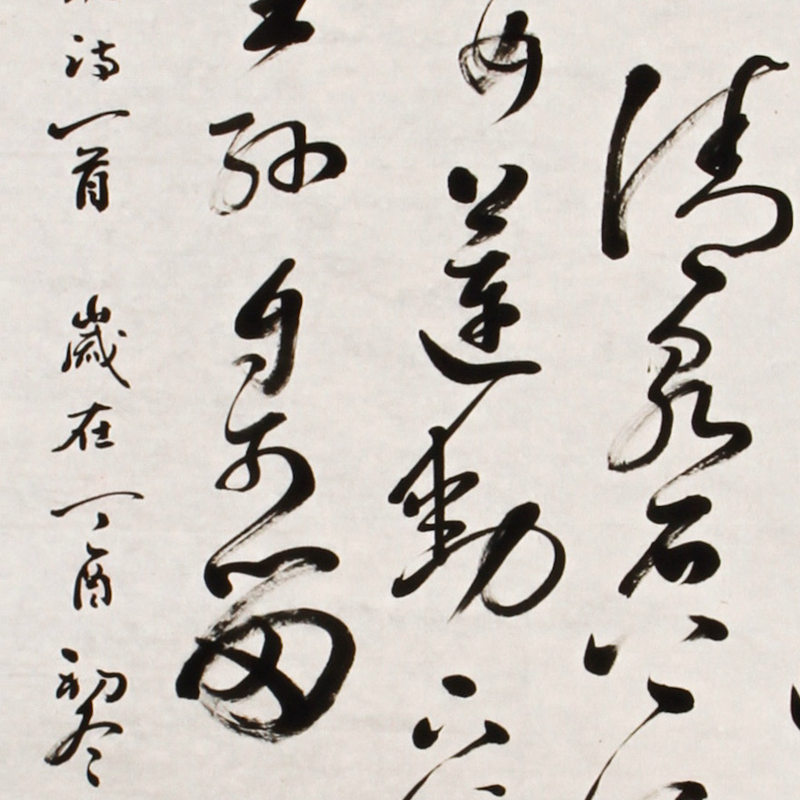 清泉石上
女蓮動下
王孫自可留
詩一首 歲在丁酉初冬